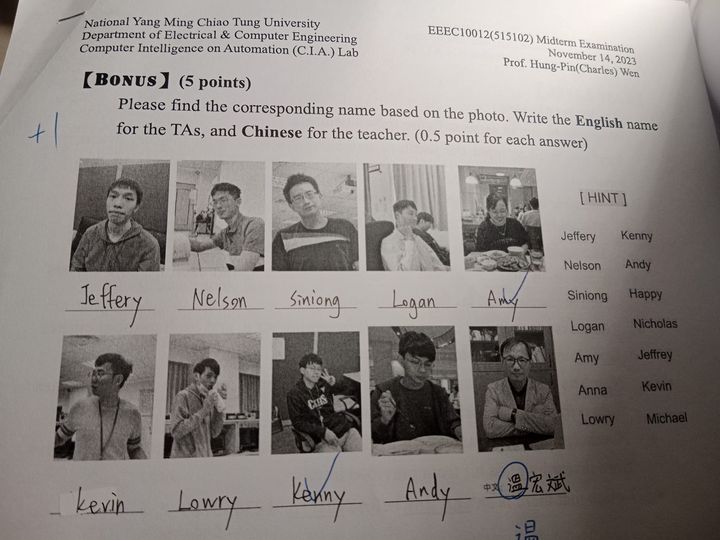 National Yang Ming Chiao Tung University
Department of Electrical & Computer Engineering
Computer Intelligence on Automation (C.I.A.) Lab
EEEC10012(515102) Midterm Examination
November 14, 2023
Prof. Hung-Pin(Charles) Wen
【BONUS】 (5 points)
Please find the corresponding name based on the photo. Write the English name
for the TAs, and Chinese for the teacher. (0.5 point for each answer)
+1
[ HINT ]
Jeffery Kenny
Nelson Andy
Siniong Happy
Logan Nicholas
Amy Jeffrey
Anna Kevin
Lowry Michael
Jeffery Nelson Siniong Logan Amy
Kevin Lowry Kenny Andy 中文: 溫宏斌
温